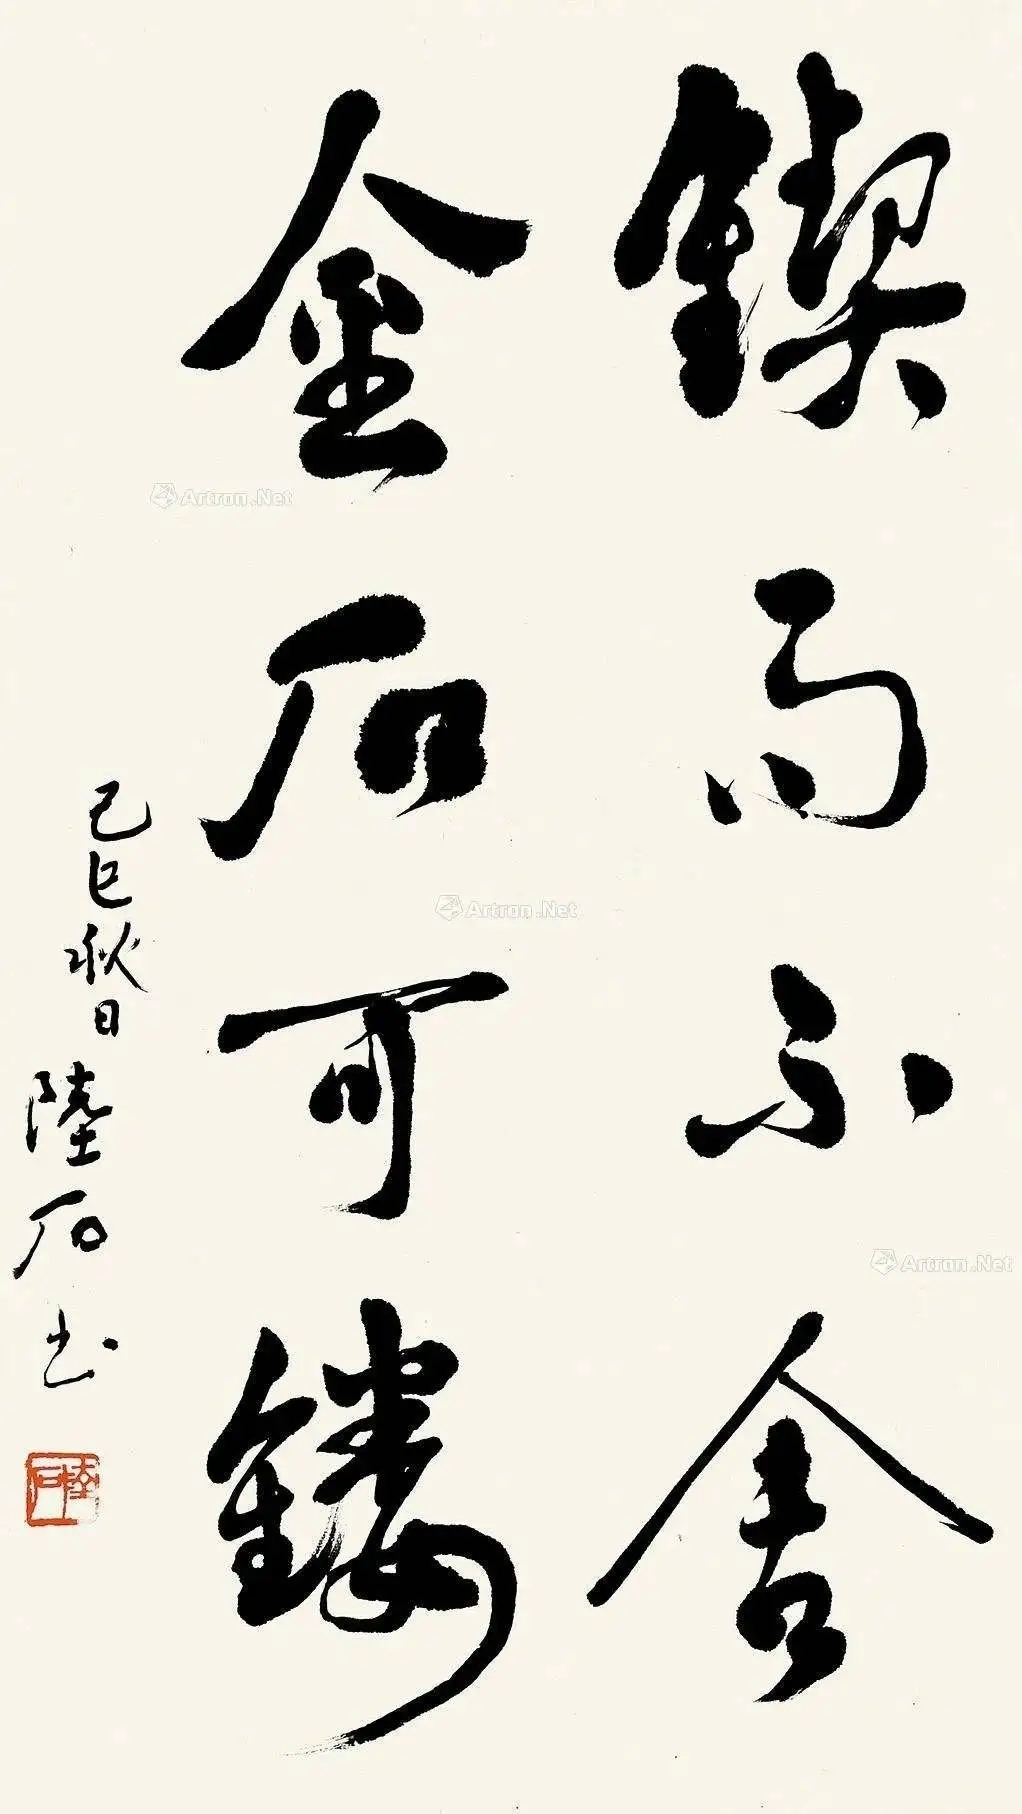 鍥而不舍
金石可鏤
己巳秋日
陸石书
陸石
Artron.Net
Artron.Net
Artron.Net